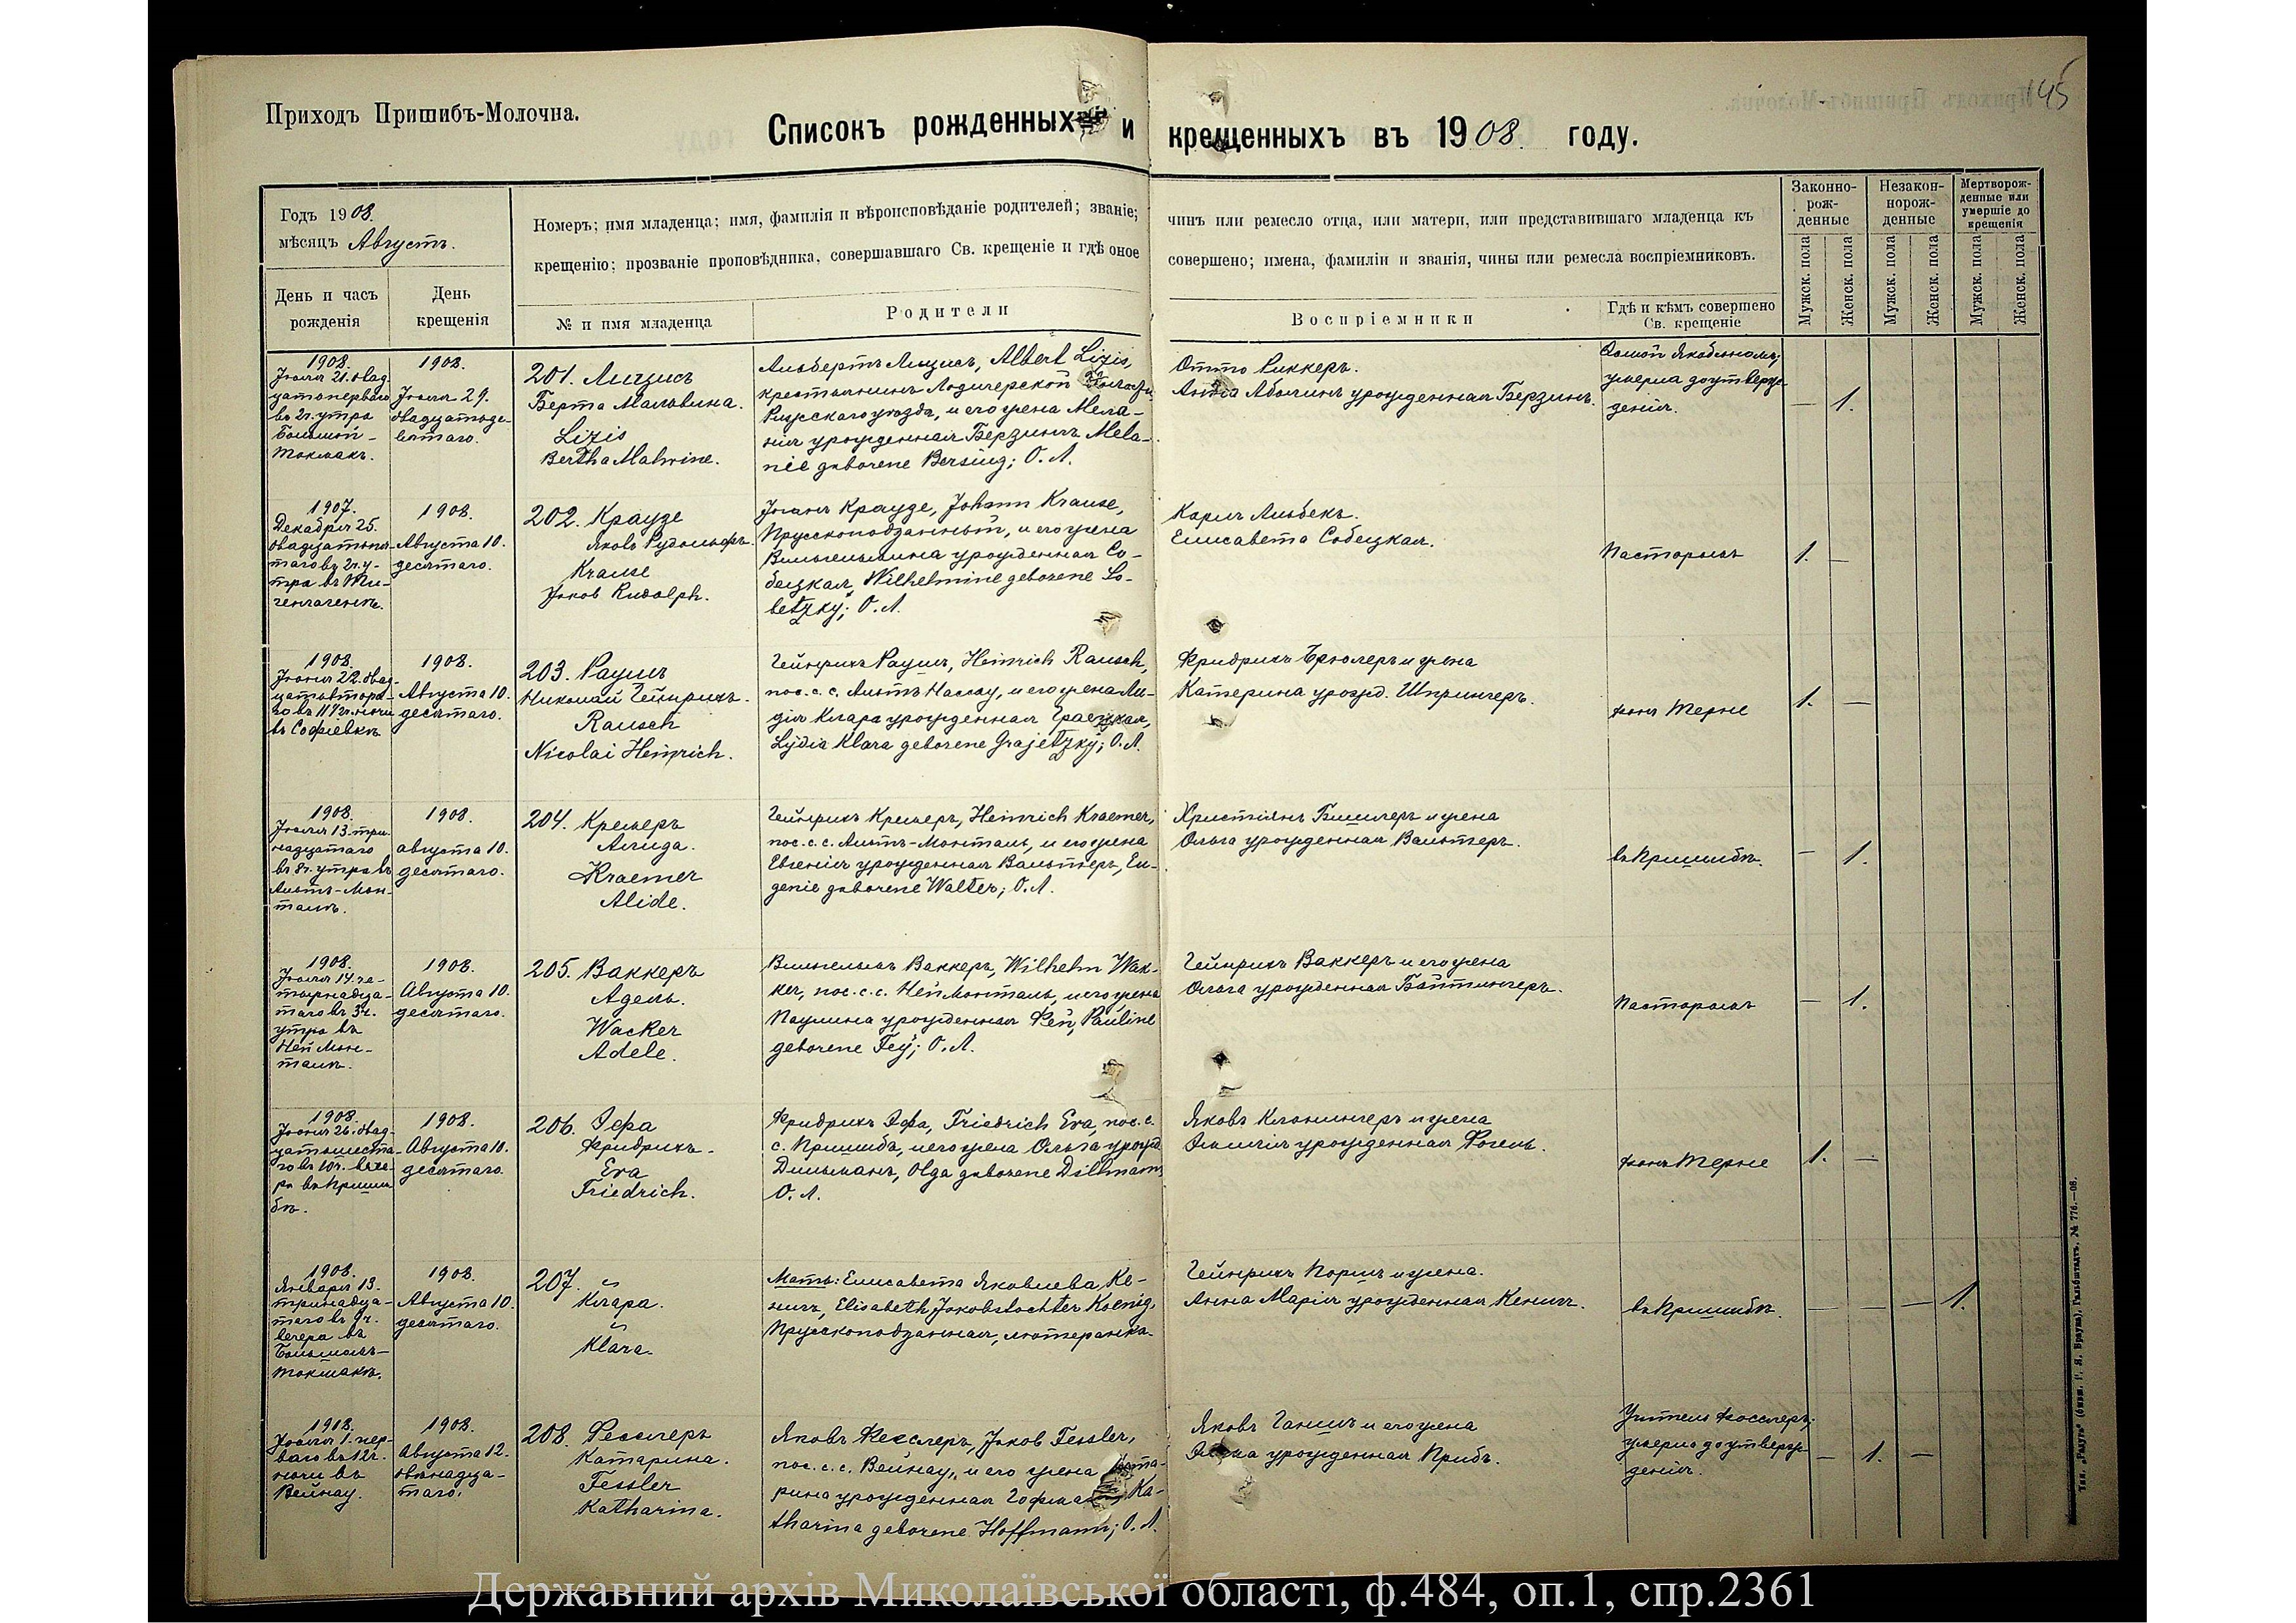 145
Приходъ Пришибъ-Молочна.
Списокъ рожденныхъ и крещенныхъ въ 1908 году.
Годъ 1908.
мѣсяцъ Августъ.
День и часъ
рожденія
День
крещенія
Номеръ; имя младенца; имя, фамилія и вѣроисповѣданіе родителей; званіе; чинъ или ремесло отца, или матери, или представившаго младенца къ
крещенію; прозваніе проповѣдника, совершавшаго Св. крещеніе и гдѣ оное совершено; имена, фамиліи и званія, чины или ремесла воспріемниковъ.
№ и имя младенца
Родители
Воспріемники
Гдѣ и кѣмъ совершено
Св. крещеніе
Законно-
рож-
денные
Незакон-
норож-
денные
Мертворож-
денные или
умершіе до
крещенія
Мужск. пола
Женск. пола
Мужск. пола
Женск. пола
Мужск. пола
Женск. пола
1908.
Іюля 21. двад-
цатьперваго
въ 2ч. утра
Большой-
Токмакъ.
1908.
Іюля 29.
двадцатьде-
вятаго.
201. Лизисъ
Берта Мальвина.
Lizis
Bertha Malwine.
Альбертъ Лизисъ, Albert Lizis,
крестьянинъ
Рижскаго уѣзда, и его жена Мела-
нія урожденная Берзингъ Mela-
nie geborene Bersing; О. Л.
Отто Риккеръ.
Анна урожденная Берзингъ.
умерла до утверж-
денія.
— 1.
1907.
Декабря 25.
двадцатьпя-
таго въ 2ч. у-
тра въ Ти-
генгагенъ.
1908.
Августа 10.
десятаго.
202. Краузе
Яковъ Рудольфъ.
Krause
Jakob Rudolph.
Іоганъ Краузе, Johann Krause,
Прусскоподданный, и его жена
Вильгельмина урожденная Со-
бецкая, Wilhelmine geborene So-
betzky; О. Л.
Карлъ Альбекъ.
Елисавета Собецкая.
Пасторомъ
1. —
1908.
Іюня 22. двад-
цатьвтора-
го въ 11 1/2 ч. ночи
въ Софіевкѣ
1908.
Августа 10.
десятаго.
203. Раушъ
Николай Гейнрихъ.
Rausch
Nicolai Heinrich.
Гейнрихъ Раушъ, Heinrich Rausch,
пос. с. с. Альтъ Нассау, и его жена Ли-
дія Клара урожденная Граецкая,
Lydia Klara geborene Grajetzky; О. Л.
Фридрихъ Брюлеръ и жена
Катерина урожд. Шпрингеръ.
фонъ Терне
1. —
1908.
Іюля 13. три-
надцатаго
въ 8ч. утра въ
Альтъ-Мон-
талѣ.
1908.
августа 10.
десятаго.
204. Кремеръ
Алида.
Kraemer
Alide.
Гейнрихъ Кремеръ, Heinrich Kraemer,
пос. с. с. Альтъ-Монталь, и его жена
Евгенія урожденная Вальтеръ, Eu-
genie geborene Walter; О. Л.
Христіянъ Бишлеръ и жена
Ольга урожденная Вальтеръ.
въ Пришибѣ.
— 1.
1908.
Іюля 14. че-
тырнадца-
таго въ 3ч.
утра въ
Ней Мон-
талѣ.
1908.
Августа 10.
десятаго.
205. Ваккеръ
Адель.
Wacker
Adele.
Вильгельмъ Ваккеръ, Wilhelm Wak-
ker, пос. с. с. Ней Монталь, и его жена
Паулина урожденная Фей, Pauline
geborene Fey; О. Л.
Гейнрихъ Ваккеръ и его жена
Ольга урожденная Байтингеръ.
Пасторомъ
— 1.
1908.
Іюня 26. двад-
цатьшеста-
го въ 10ч. вече-
ра въ Приши-
бѣ.
1908.
Августа 10.
десятаго.
206. Эфа
Фридрихъ.
Eva
Friedrich.
Фридрихъ Эфа, Friedrich Eva, пос. с.
с. Пришибъ, и его жена Ольга урожд.
Дильманъ, Olga geborene Dillmann
О. Л.
Яковъ Клонингеръ и жена
Эмилія урожденная Фогель.
фонъ Терне
1. —
1908.
Января 13.
тринадца-
таго въ 9ч.
вечера въ
Большомъ-
Токмакѣ.
1908.
Августа 10.
десятаго.
207.
Клара.
Klara.
Мать: Елисавета Яковлева Ке-
нигъ, Elisabeth Jakobstochter Koenig,
Прусскоподданная, лютеранка.
Гейнрихъ Лоришъ и жена.
Анна Марія урожденная Кенигъ.
въ Пришибѣ.
— — — 1.
1908.
Іюля 1. пер-
ваго въ 12ч.
ночи въ
Вейнау.
1908.
Августа 12.
двѣнадца-
таго.
208. Фесслеръ
Катарина.
Fessler
Katharina.
Яковъ Фесслеръ, Jakob Fessler,
пос. с. с. Вейнау, и его жена Ката-
рина урожденная Гофманъ, Ka-
tharina geborene Hoffmann; О. Л.
Яковъ Ганшъ и его жена
урожденная Прибъ.
Учитель Фосслеръ;
умерла до утверж-
денія.
— 1. —
Тип. „Радуга“ (бывш. П. Я. Брауна), Гальбштадтъ. № 776.—08.
Державний архів Миколаївської області, ф.484, оп.1, спр.2361